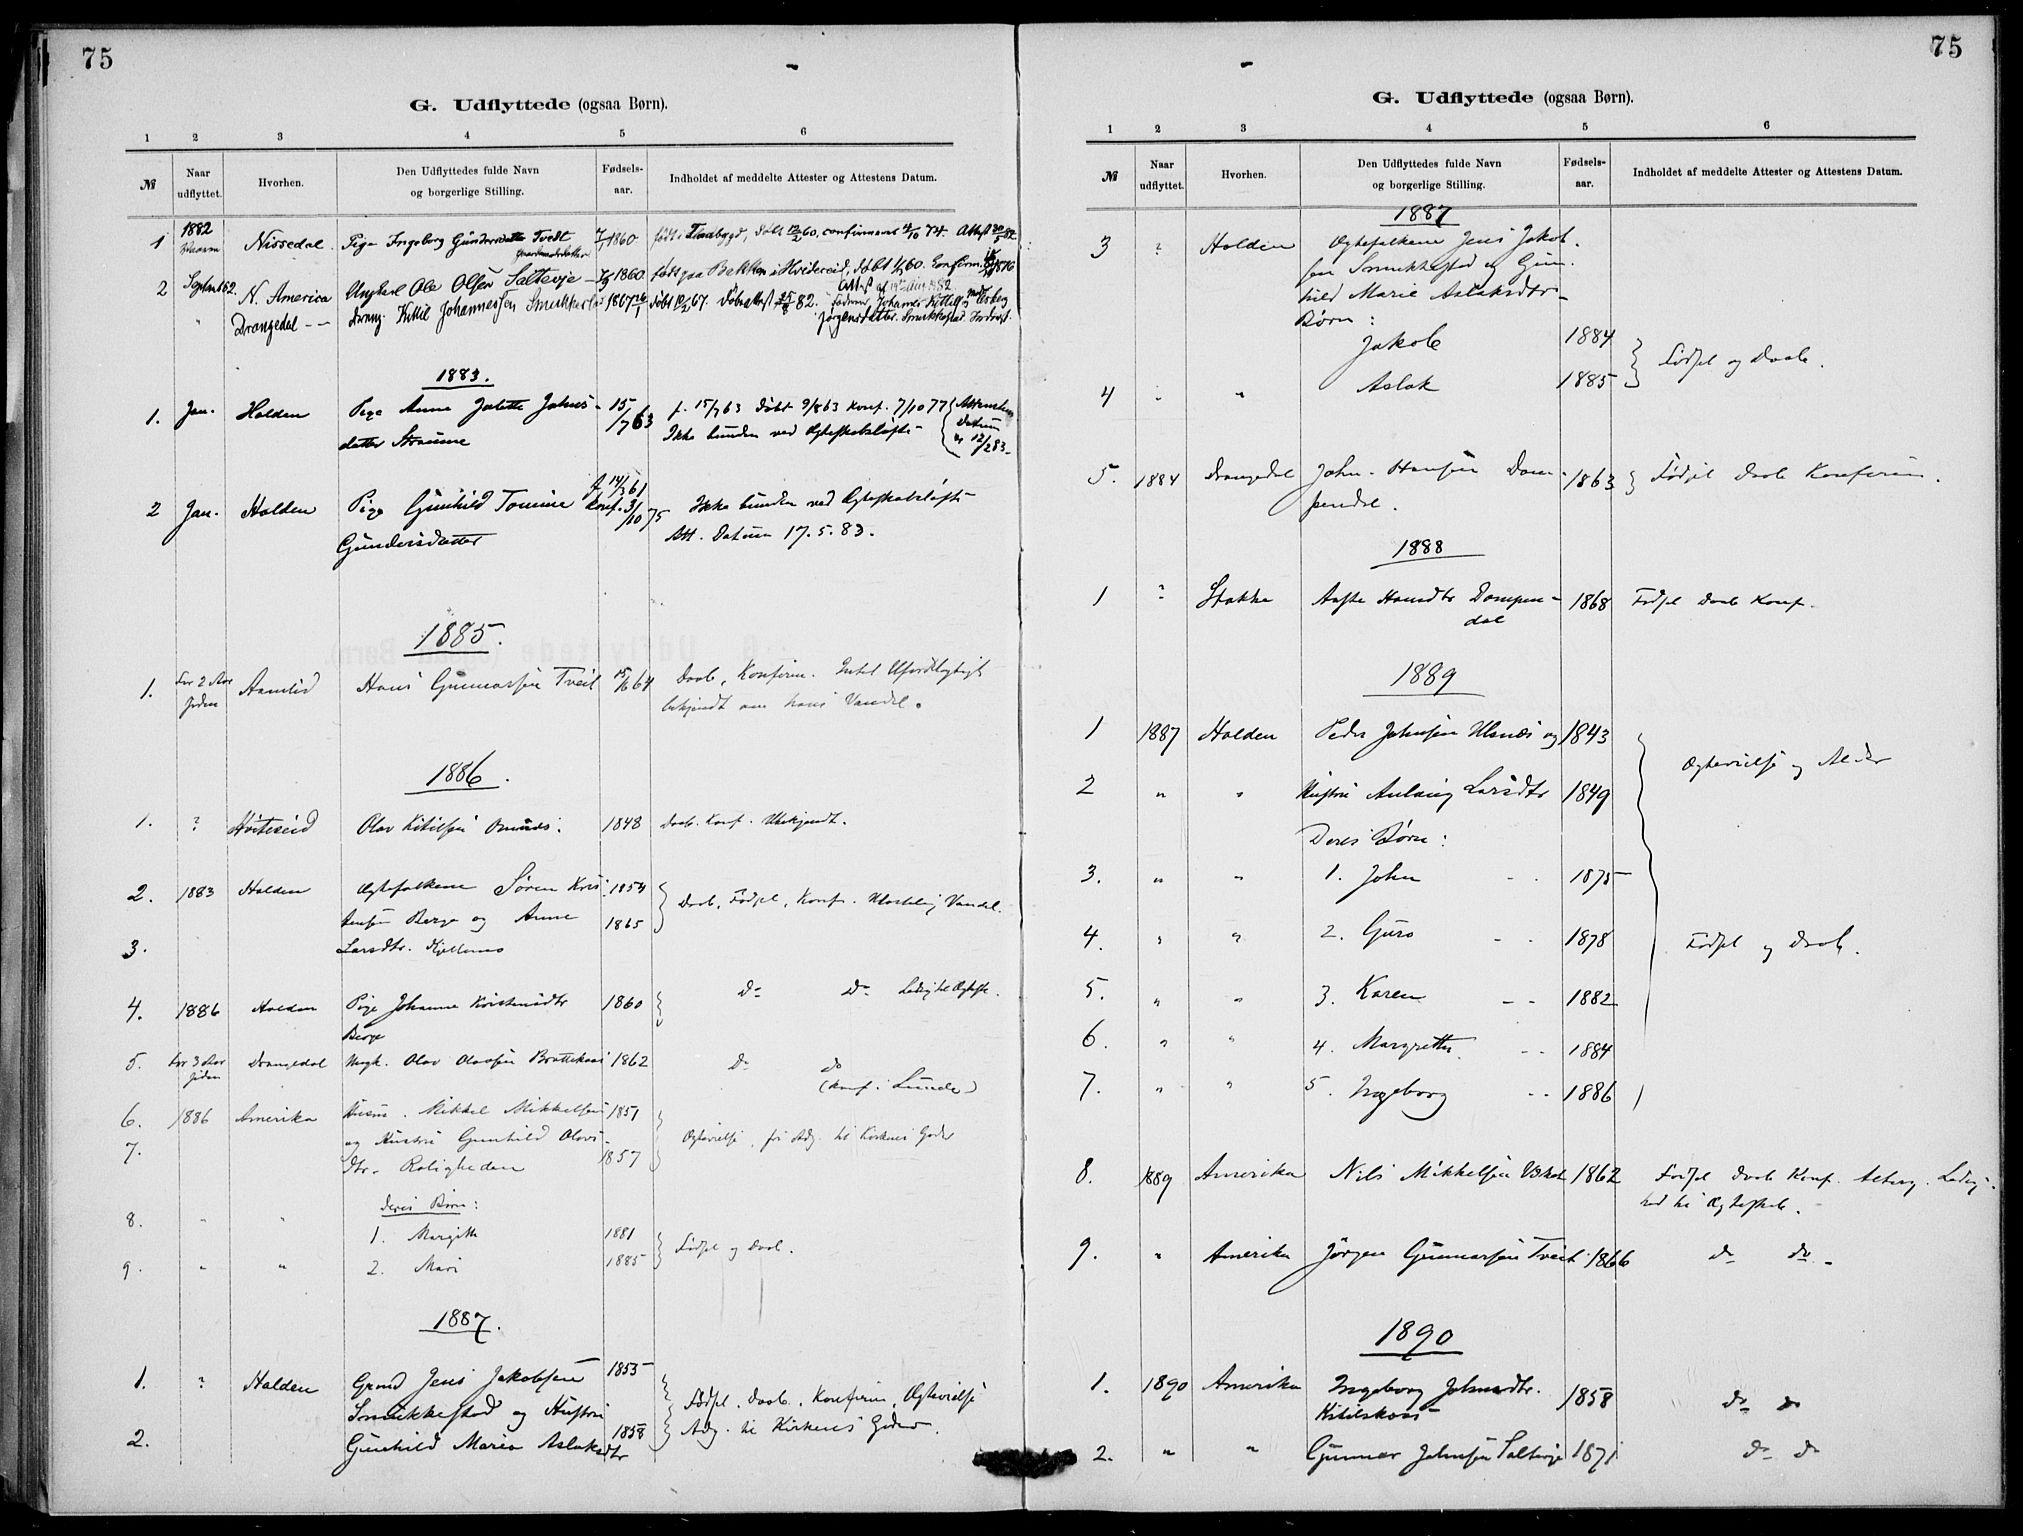 75
G. Udflyttede (ogsaa Børn).
1 2 3 4 5 6
№ Naar udflyttet. Hvorhen. Den Udflyttedes fulde Navn og borgerlige Stilling. Fødsels-aar. Indholdet af meddelte Attester og Attestens Datum.
1882
1 Nissedal Pige Ingeborg Gundersdatter Tvedt 7/1 1860 født i Flaabygd, døbt 12/2 60, confirmeret 4/10 74. Attest 30/5 82
Gaardmandsdatter
2 Septmb 82. N. America Ungkarl Ole Olsen Saltevje 1860 født paa Bakken i Hvidereid, døbt 60. Confirm. 1876
Attest af 19de Aug 1882.
" Drangedal -- dreng. Kittil Johannessen Smukkest 1867 26/1 døbt 10/2 67. Døbeattest 25/8 82. Johannes Kittilsen
Jørgensdatter Smukkestad
1883.
1. Jan. Holden Pige Anne Jolette Johns- 15/7 63 f. 15/7 63 døbt 9/8 63 konf. 7/10 77 Attestens
datter Straume Ikke bunden ved Ægteskabsløfte - Datum
12/2 83.
2 Jan. Holden Pige Gunhild Tomine f 14/3 61 Ikke bunden ved Ægteskabsløfte
Gundersdatter konf. 3/10 75 Att. Datum 17.5.83.
1885.
1. For 2 Aar siden Aamlid Hans Gunnarsen Tveit 15/6 64 Daab, Konfirm. Intet Ufordelagtigt
bekjendt om hans Vandel.
1886.
1. ? Hviteseid Olav Kitilsen 1848 Daab. Konf. Ubekjendt.
2. 1883 Holden Ægtefolkene Søren Kris- 1854 Daab, Fødsel, Konf. Ustrafelig Vandel.
tensen Berge og Anne 1865
3. Larsdtr.
4. 1886 Holden Pige Johanne Kristensdtr 1860 Do Do Ledig til Ægtesk.
Berge
5. For 3 Aar siden Drangedal Ungk. Olav Olavsen Brattekaas 1862 Do do
(konf. i Lunde)
6. 1886 Amerika Husm. Mikkel Mikkelsen 1851
7. og Hustru Gunhild Olavs- Ægtevielse, fri Adg. til Kirkens Goder
dtr. Roligheden 1857
Deres Børn:
8. " " 1. Margith 1881 Fødsel og Daab.
9. " " 2. Mari 1885
1887.
1. ? Holden Grmd Jens Jakobsen 1855
Smukkestad og Hustru Fødsel, Daab, Konfirm, Ægtevielse
2. Gunhild Marie Aslaksdtr 1858 Adg. til Kirkens Goder.
75
G. Udflyttede (ogsaa Børn).
1 2 3 4 5 6
№ Naar udflyttet. Hvorhen. Den Udflyttedes fulde Navn og borgerlige Stilling. Fødsels-aar. Indholdet af meddelte Attester og Attestens Datum.
1887
3 ? Holden Ægtefolkene Jens Jakob-
sen Smukkestad og Gun-
hild Marie Aslaksdtr -
Børn:
Jakob 1884 Fødsel og Daab.
4 " " Aslak 1885
5. 1884 Drangedal John Hansen Dam- 1863 Fødsel Daab Konfirm.
pendal.
1888
1 ? Stokke Aaste Hansdtr Dampen- 1868 Fødsel Daab Konf.
dal
1889
1 1887 Holden Peder Johnsen Ulsnæs og 1843
Ægtevielse og Alder
2 " " Hustru Anlaug Larsdtr 1849
Deres Børn:
3. " " 1. John - - 1875
4. " " 2. Guro - - 1878 Fødsel og Daab.
5. " " 3. Karen - - 1882
6. " " 4. Margrethe - - 1884
7. " " 5. Ingeborg - - 1886
8. 1889 Amerika Nils Mikkelsen 1862 Fødsel Daab Konf. Alterg. Ledig-
hed til Ægteskab.
9. " Amerika Jörgen Gunnarsen Tveit 1866 do do -
1890
1. 1890 Amerika Ingeborg Johnsdtr. 1858 do do
Kitilskaas
2. " " Gunnar Johnsen Saltevje 1871 do do